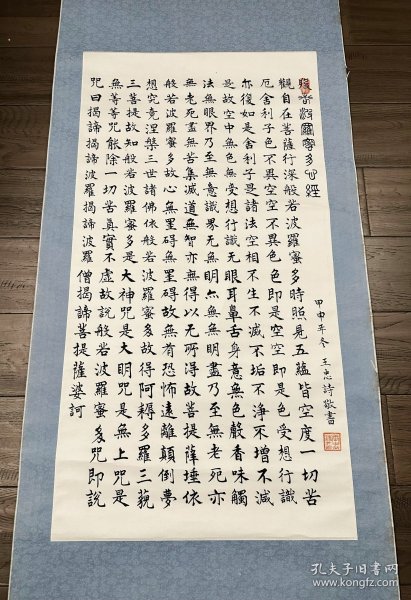 般若波羅蜜多心經
觀自在菩薩行深般若波羅蜜多時照見五蘊皆空度一切苦
厄舍利子色不異空空不異色色即是空空即是色受想行識
亦復如是舍利子是諸法空相不生不滅不垢不淨不增不減
是故空中無色無受想行識無眼耳鼻舌身意無色聲香味觸
法無眼界乃至無意識界無無明亦無無明盡乃至無老死亦
無老死盡無苦集滅道無智亦無得以無所得故菩提薩埵依
般若波羅蜜多故心無罣碍無罣碍故無有恐怖遠離顛倒夢
想究竟涅槃三世諸佛依般若波羅蜜多故得阿耨多羅三藐
三菩提故知般若波羅蜜多是大神咒是大明咒是無上咒是
無等等咒能除一切苦真實不虛故說般若波羅蜜多咒即說
咒曰揭諦揭諦波羅揭諦波羅僧揭諦菩提薩婆訶
甲申年冬 王忠詩敬書
孔夫子旧书网
www.kongfz.com